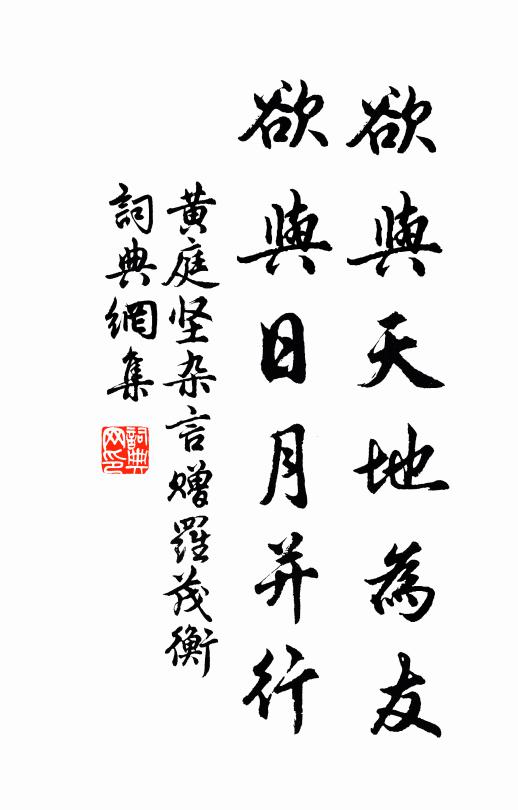 欲與天地為友
欲與日月并行
黄庭坚杂言赠羅茂衡
詞典網集
詞典网印